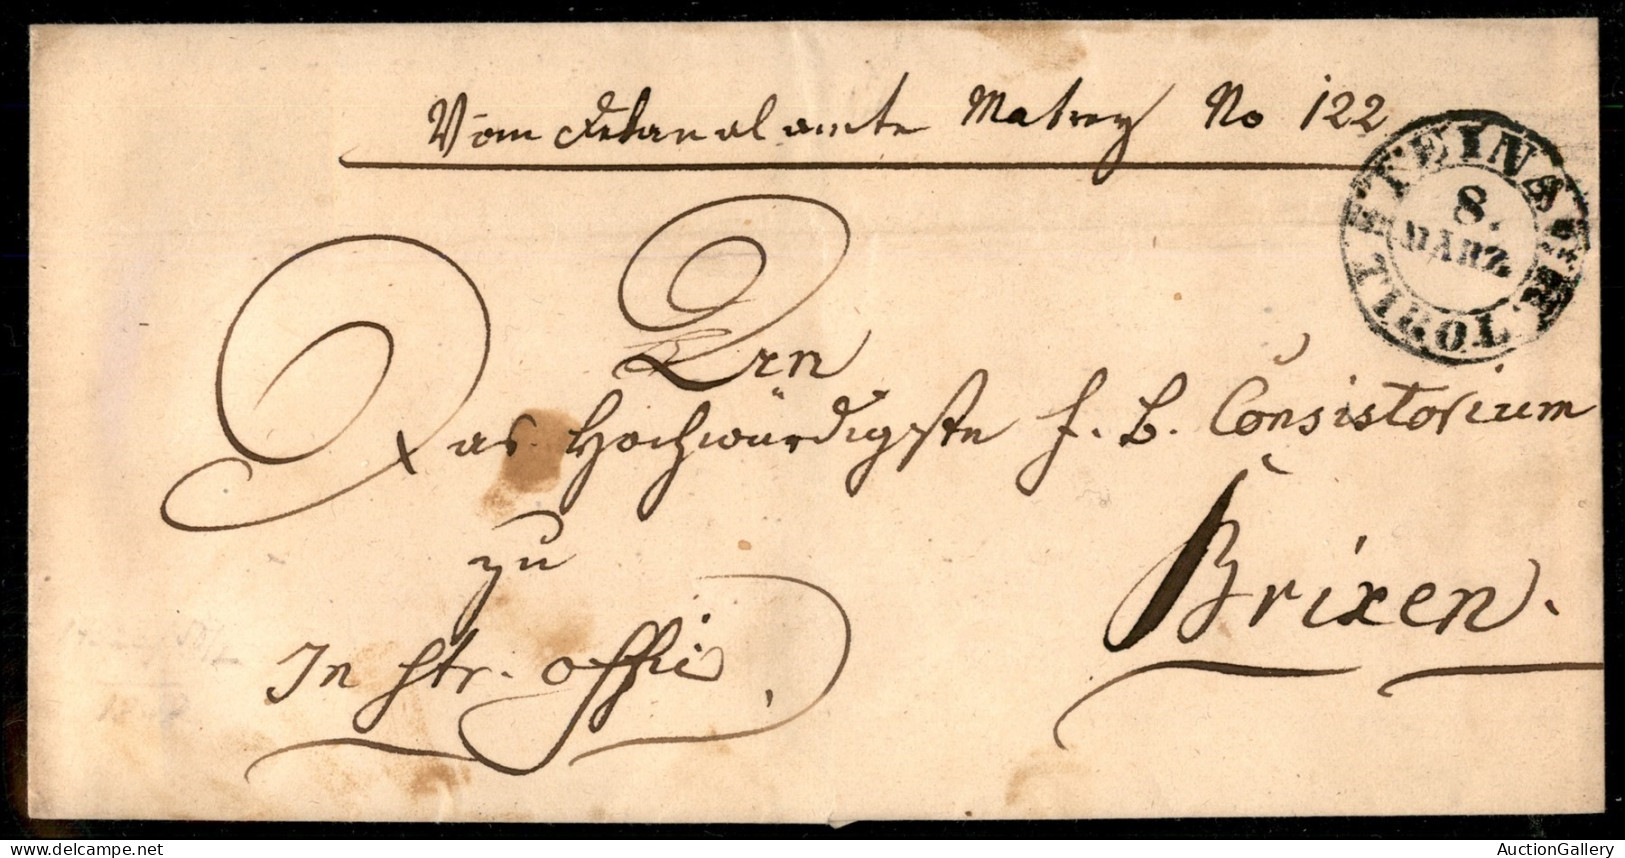 Vom Dekanalamte Matrey No 122
STEINACH
8.
MÄRZ
TIROL
An
Das Hochwürdigste f. b. Consistorium
zu
Brixen.
In str. offi
delcampe.net
AuctionGallery